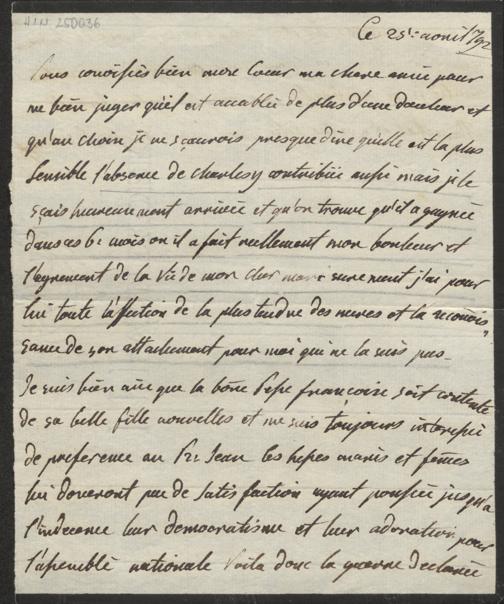 HN 250036
Ce 25e aout 1792
Vous conoissés bien mon Coeur ma chere amie pour
me bien juger qu'il est accablé de plus d'une douleur et
qu'au choix je ne sçaurois presque dire qu'elle est la plus
sensible l'absence de Charles y contribüe aussi mais je le
sçais heureusement arrivée et qu'on trouve qu'il a gagnée
dans ces 6 mois on il a fait reellement mon bonheur et
l'agrement de la vie de mon cher mari surement j'ai pour
lui toute l'affection de la plus tendre des meres et la reconois
sance de son attachement pour moi qui ne la suis pas
Je suis bien aise que la bone françoise soit contente
de sa belle fille nouvelles et me suis toujours interessée
de preference au Pr Jean les maris et femes
lui doneront peu de satisfaction ayant poussée jusqu'a
l'indecence leur democratisme et leur adoration pour
l'assemblé nationale Voila donc la guerre declarée